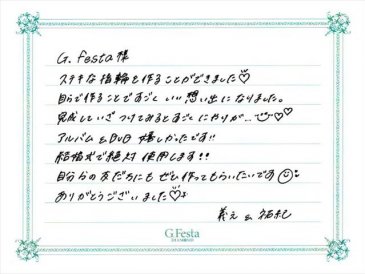 G. festa 様
ステキな指輪を作ることができました♡
自分で作ることですごくいい想い出になりました。
完成していざつけてみるとすごくにやりが…☺♡♡
アルバム&DVD 嬉しかったです!!
結婚式で絶対使用します!!
自分らの友だちにもぜひ作ってもらいたいです☺
ありがとうございました♡
義之 &
G.Festa